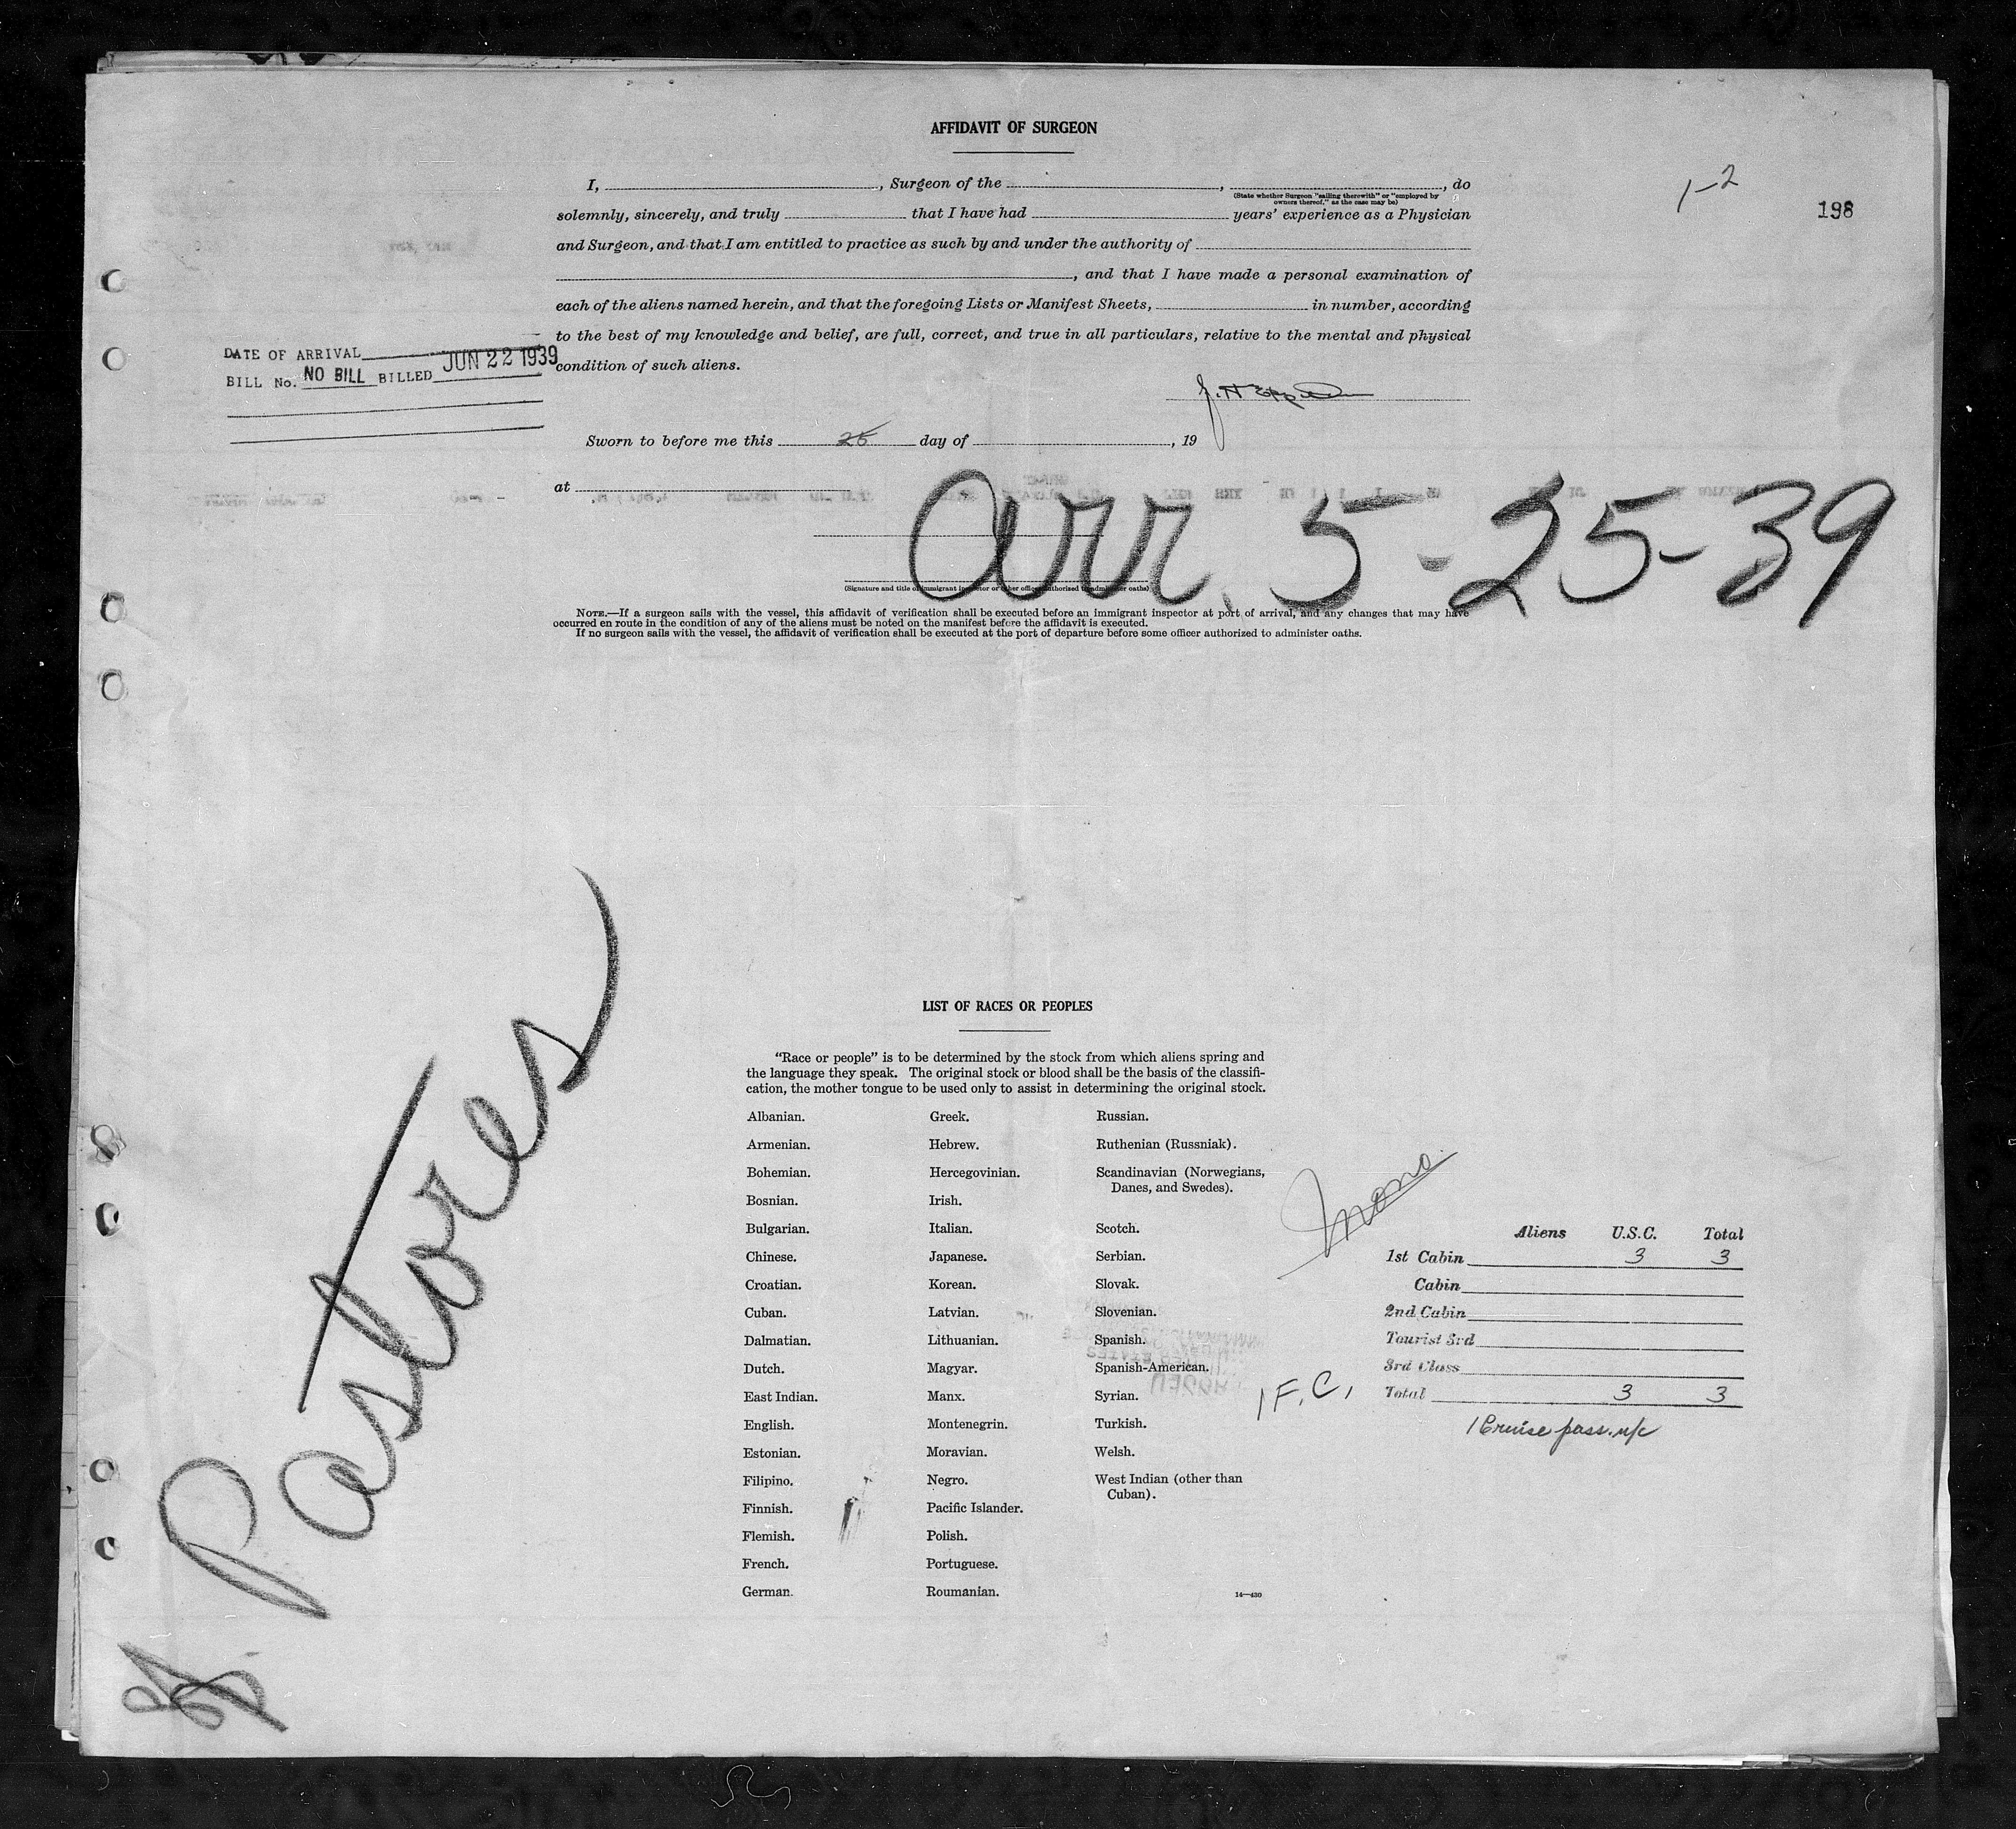 AFFIDAVIT OF SURGEON
I, , Surgeon of the , , do
(State whether Surgeon "sailing therewith" or "employed by
owners thereof," as the case may be)
1-2
198
solemnly, sincerely, and truly that I have had years' experience as a Physician
and Surgeon, and that I am entitled to practice as such by and under the authority of
, and that I have made a personal examination of
each of the aliens named herein, and that the foregoing Lists or Manifest Sheets, in number, according
to the best of my knowledge and belief, are full, correct, and true in all particulars, relative to the mental and physical
condition of such aliens.
DATE OF ARRIVAL
BILL No. NO BILL BILLED JUN 22 1939
Sworn to before me this 25 day of , 19
at
Arr. 5-25-39
(Signature and title of immigrant inspector or other officer authorized to administer oaths)
NOTE.—If a surgeon sails with the vessel, this affidavit of verification shall be executed before an immigrant inspector at port of arrival, and any changes that may have
occurred en route in the condition of any of the aliens must be noted on the manifest before the affidavit is executed.
If no surgeon sails with the vessel, the affidavit of verification shall be executed at the port of departure before some officer authorized to administer oaths.
Pastores
LIST OF RACES OR PEOPLES
"Race or people" is to be determined by the stock from which aliens spring and
the language they speak. The original stock or blood shall be the basis of the classifi-
cation, the mother tongue to be used only to assist in determining the original stock.
Albanian.
Armenian.
Bohemian.
Bosnian.
Bulgarian.
Chinese.
Croatian.
Cuban.
Dalmatian.
Dutch.
East Indian.
English.
Estonian.
Filipino.
Finnish.
Flemish.
French.
German.
Greek.
Hebrew.
Hercegovinian.
Irish.
Italian.
Japanese.
Korean.
Latvian.
Lithuanian.
Magyar.
Manx.
Montenegrin.
Moravian.
Negro.
Pacific Islander.
Polish.
Portuguese.
Roumanian.
Russian.
Ruthenian (Russniak).
Scandinavian (Norwegians,
Danes, and Swedes).
Scotch.
Serbian.
Slovak.
Slovenian.
Spanish.
Spanish-American.
Syrian.
Turkish.
Welsh.
West Indian (other than
Cuban).
14—430
Aliens U.S.C. Total
1st Cabin 3 3
Cabin
2nd Cabin
Tourist 3rd
3rd Class
Total 3 3
1 F.C.
1 Cruise pass.